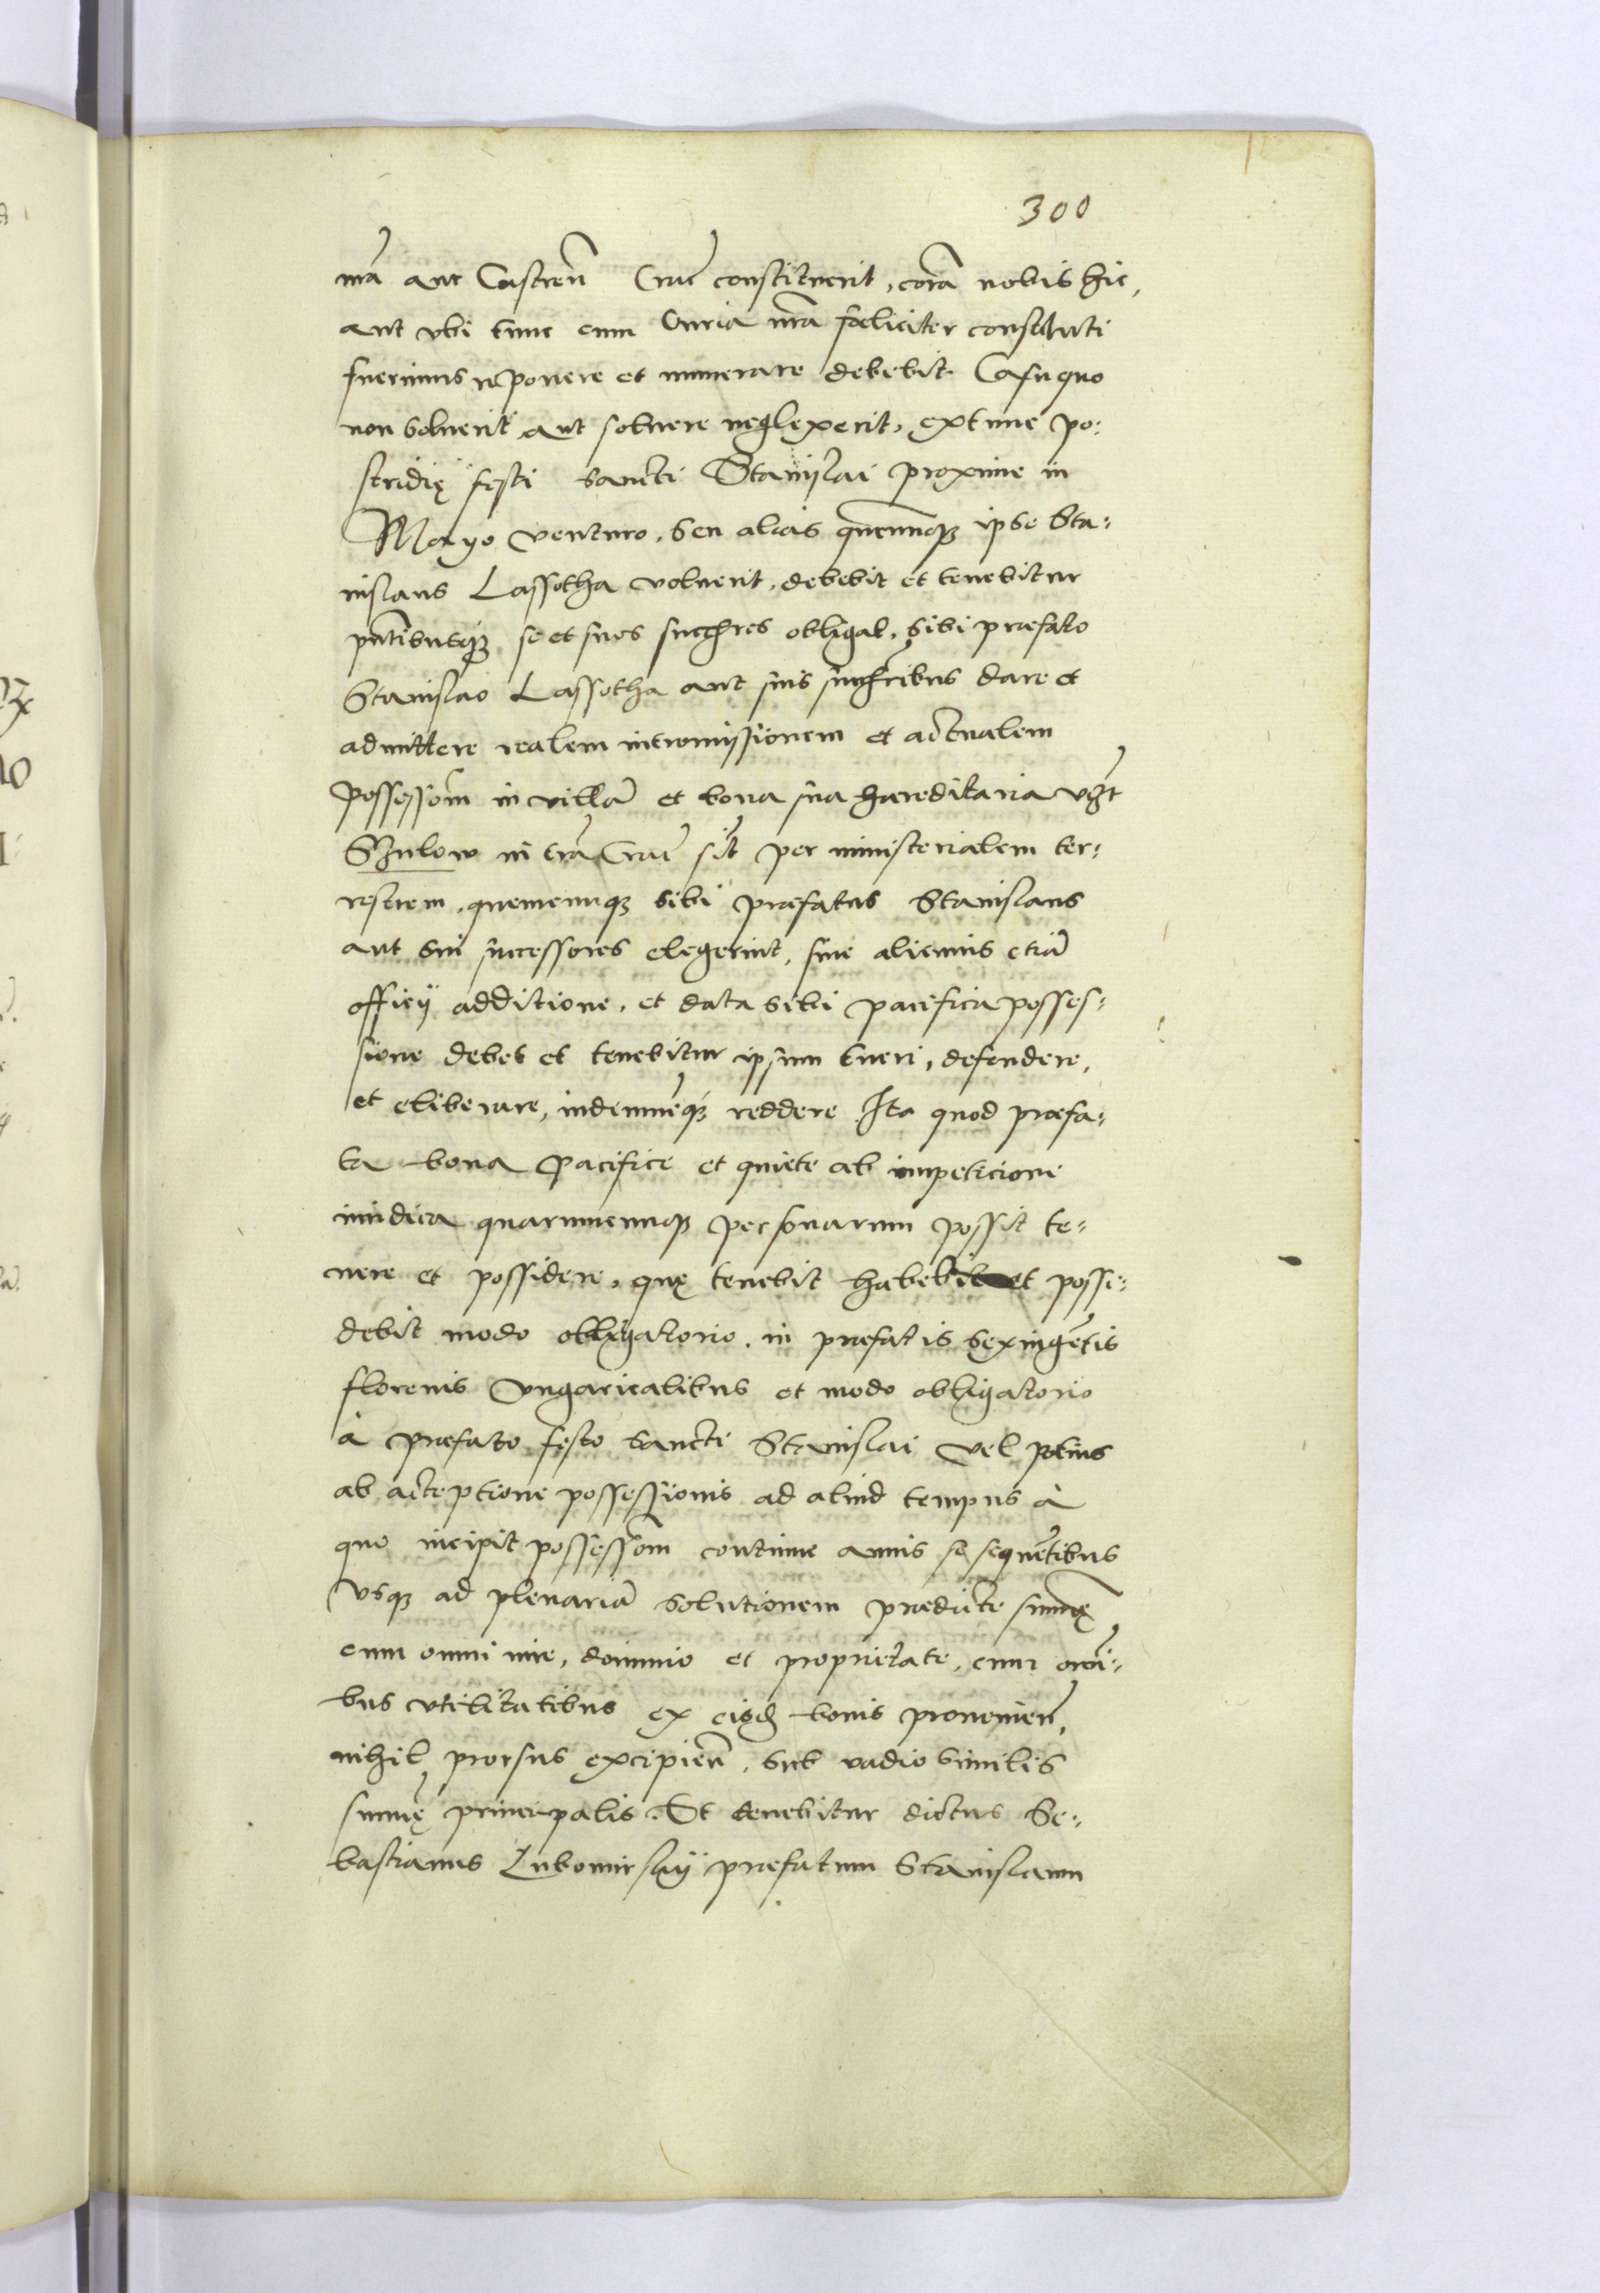 300
nrã aut Castren̄ Crac̄ constituerit, corã nobis hic,
aut vbi tunc cum Curia nrã foeliciter constituti
fuerimus reponere et numerare debebit. Casu quo
non soluerit aut soluere neglexerit, extunc po:
stridię festi sancti Stanislai proxime in
Mayo venturo, seu alias quemcumq3 ipse Sta:
nislaus Lassotha voluerit, debebit et tenebitur
se et suos obligat, sibi præfato
Stanislao Lassotha aut suis dare et
admittere realem intromissionem et actualem
possessiom̄ in villã et bona sua hæreditaria vz̄t
Szulow in trã Crac̄ sit̄ per ministerialem ter:
restrem, quemcumq3 sibi præfatus Stanislaus
aut sui successores elegerint, sine alicuius etiã
officij additione, et data sibi pacifica posses:
sione debet et tenebitur ipsum tueri, defendere,
et eliberare, indemnēq3 reddere Ita quod præfa:
ta bona pacifice et quiete ab impeticione
iuridica quarumcumq3 personarum possit te:
nere et possidere, quę tenebit habebit et posse:
debit modo obligatorio, in præfatis sexingētis
florenis Vngaricalibus et modo obligatorio
à præfato festo sancti Stanislai vel potius
ab acceptione possessionis ad aliud tempus à
quo incipit possessiom̄ continue annis se sequētibus
vsq3 ad plenariã solutionem prædicte summę
cum omni iure, dominio et proprietate, cum omī:
bus vtilitatibus ex eisd bonis prouenien̄,
nihil prorsus excipien̄, sub vadio similis
summę principalis. Et tenebitur dictus Se:
bastianus Lubomirskij præfatum Stanislaum